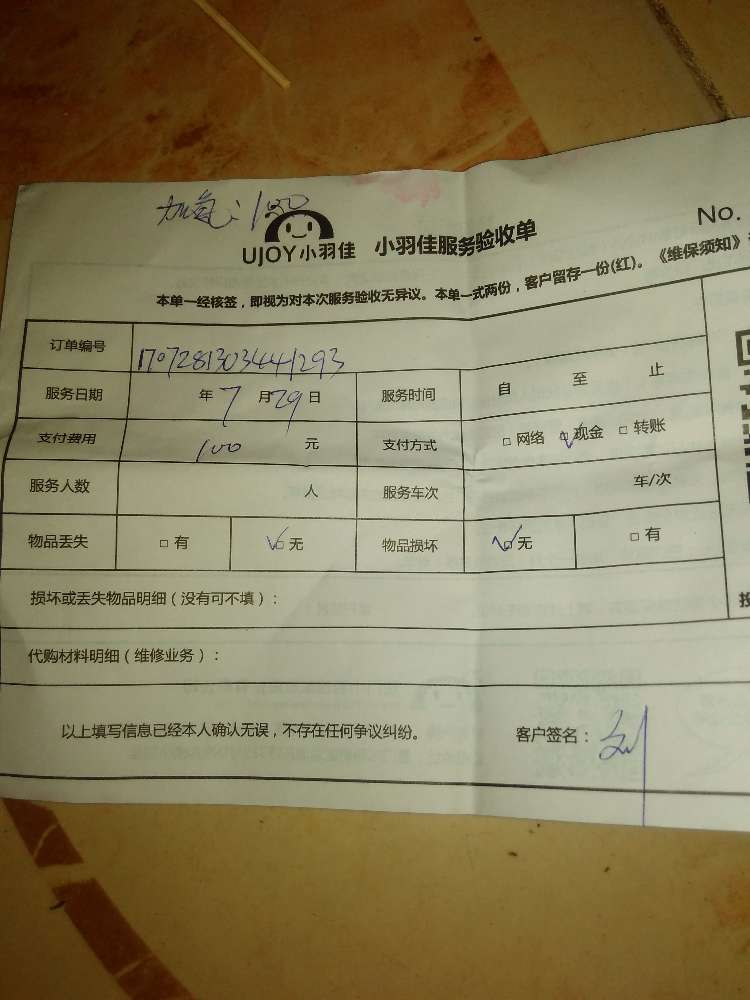 加氟：100
UJOY小羽佳 小羽佳服务验收单 No.
本单一经核签，即视为对本次服务验收无异议。本单一式两份，客户留存一份(红)。《维保须知》
订单编号 1707281303441293
服务日期 年7月29日 服务时间 自 至 止
支付费用 100 元 支付方式 □网络 ☑现金 □转账
服务人数 人 服务车次 车/次
物品丢失 □有 ☑无 物品损坏 ☑无 □有
损坏或丢失物品明细（没有可不填）：
代购材料明细（维修业务）：
以上填写信息已经本人确认无误，不存在任何争议纠纷。 客户签名：刘